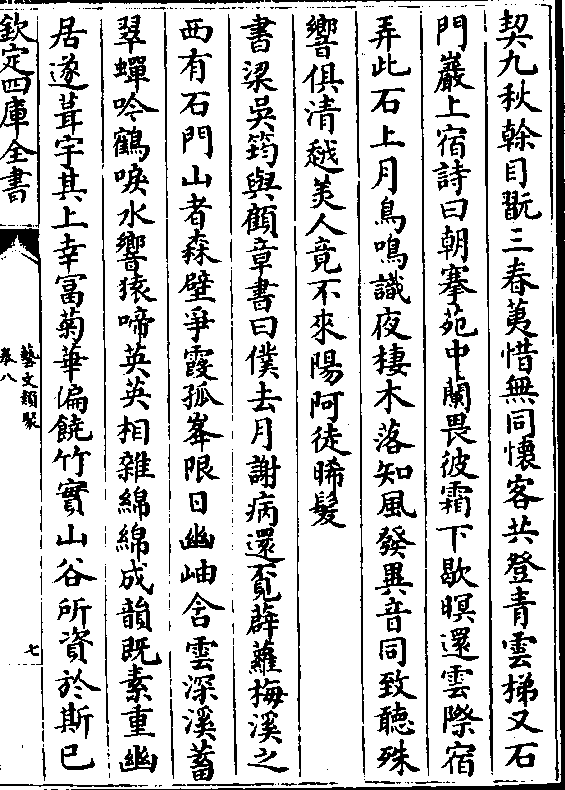 契九秋榦目翫三春荑惜無同懷客共登青雲梯又石
門巖上宿詩曰朝搴苑中蘭畏彼霜下歇暝還雲際宿
弄此石上月鳥鳴識夜棲木落知風發異音同致聽殊
響俱清越美人竟不來陽阿徒晞髮
書梁吳筠與顧章書曰僕去月謝病還覔薜蘿梅溪之
西有石門山者森壁爭霞孤峯限日幽岫含雲深溪蓄
翠蟬吟鶴唳水響猿啼英英相雜綿綿成韻既素重幽
居遂葺宇其上幸富菊華偏饒竹實山谷所資於斯已
欽定四庫全書
藝文類聚
卷八
七